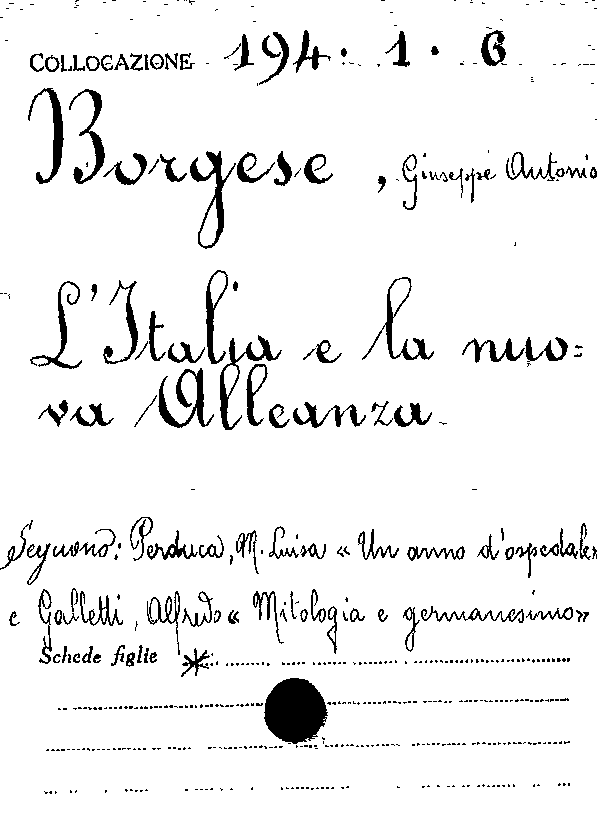 COLLOCAZIONE 194. 1. 6
Borgese, Giuseppe Antonio
L'Italia e la nuo=
va Alleanza.
Seguono: Perduca, M. Luisa « Un anno d'ospedale»
e Galletti, Alfredo « Mitologia e germanesimo»
Schede figlie